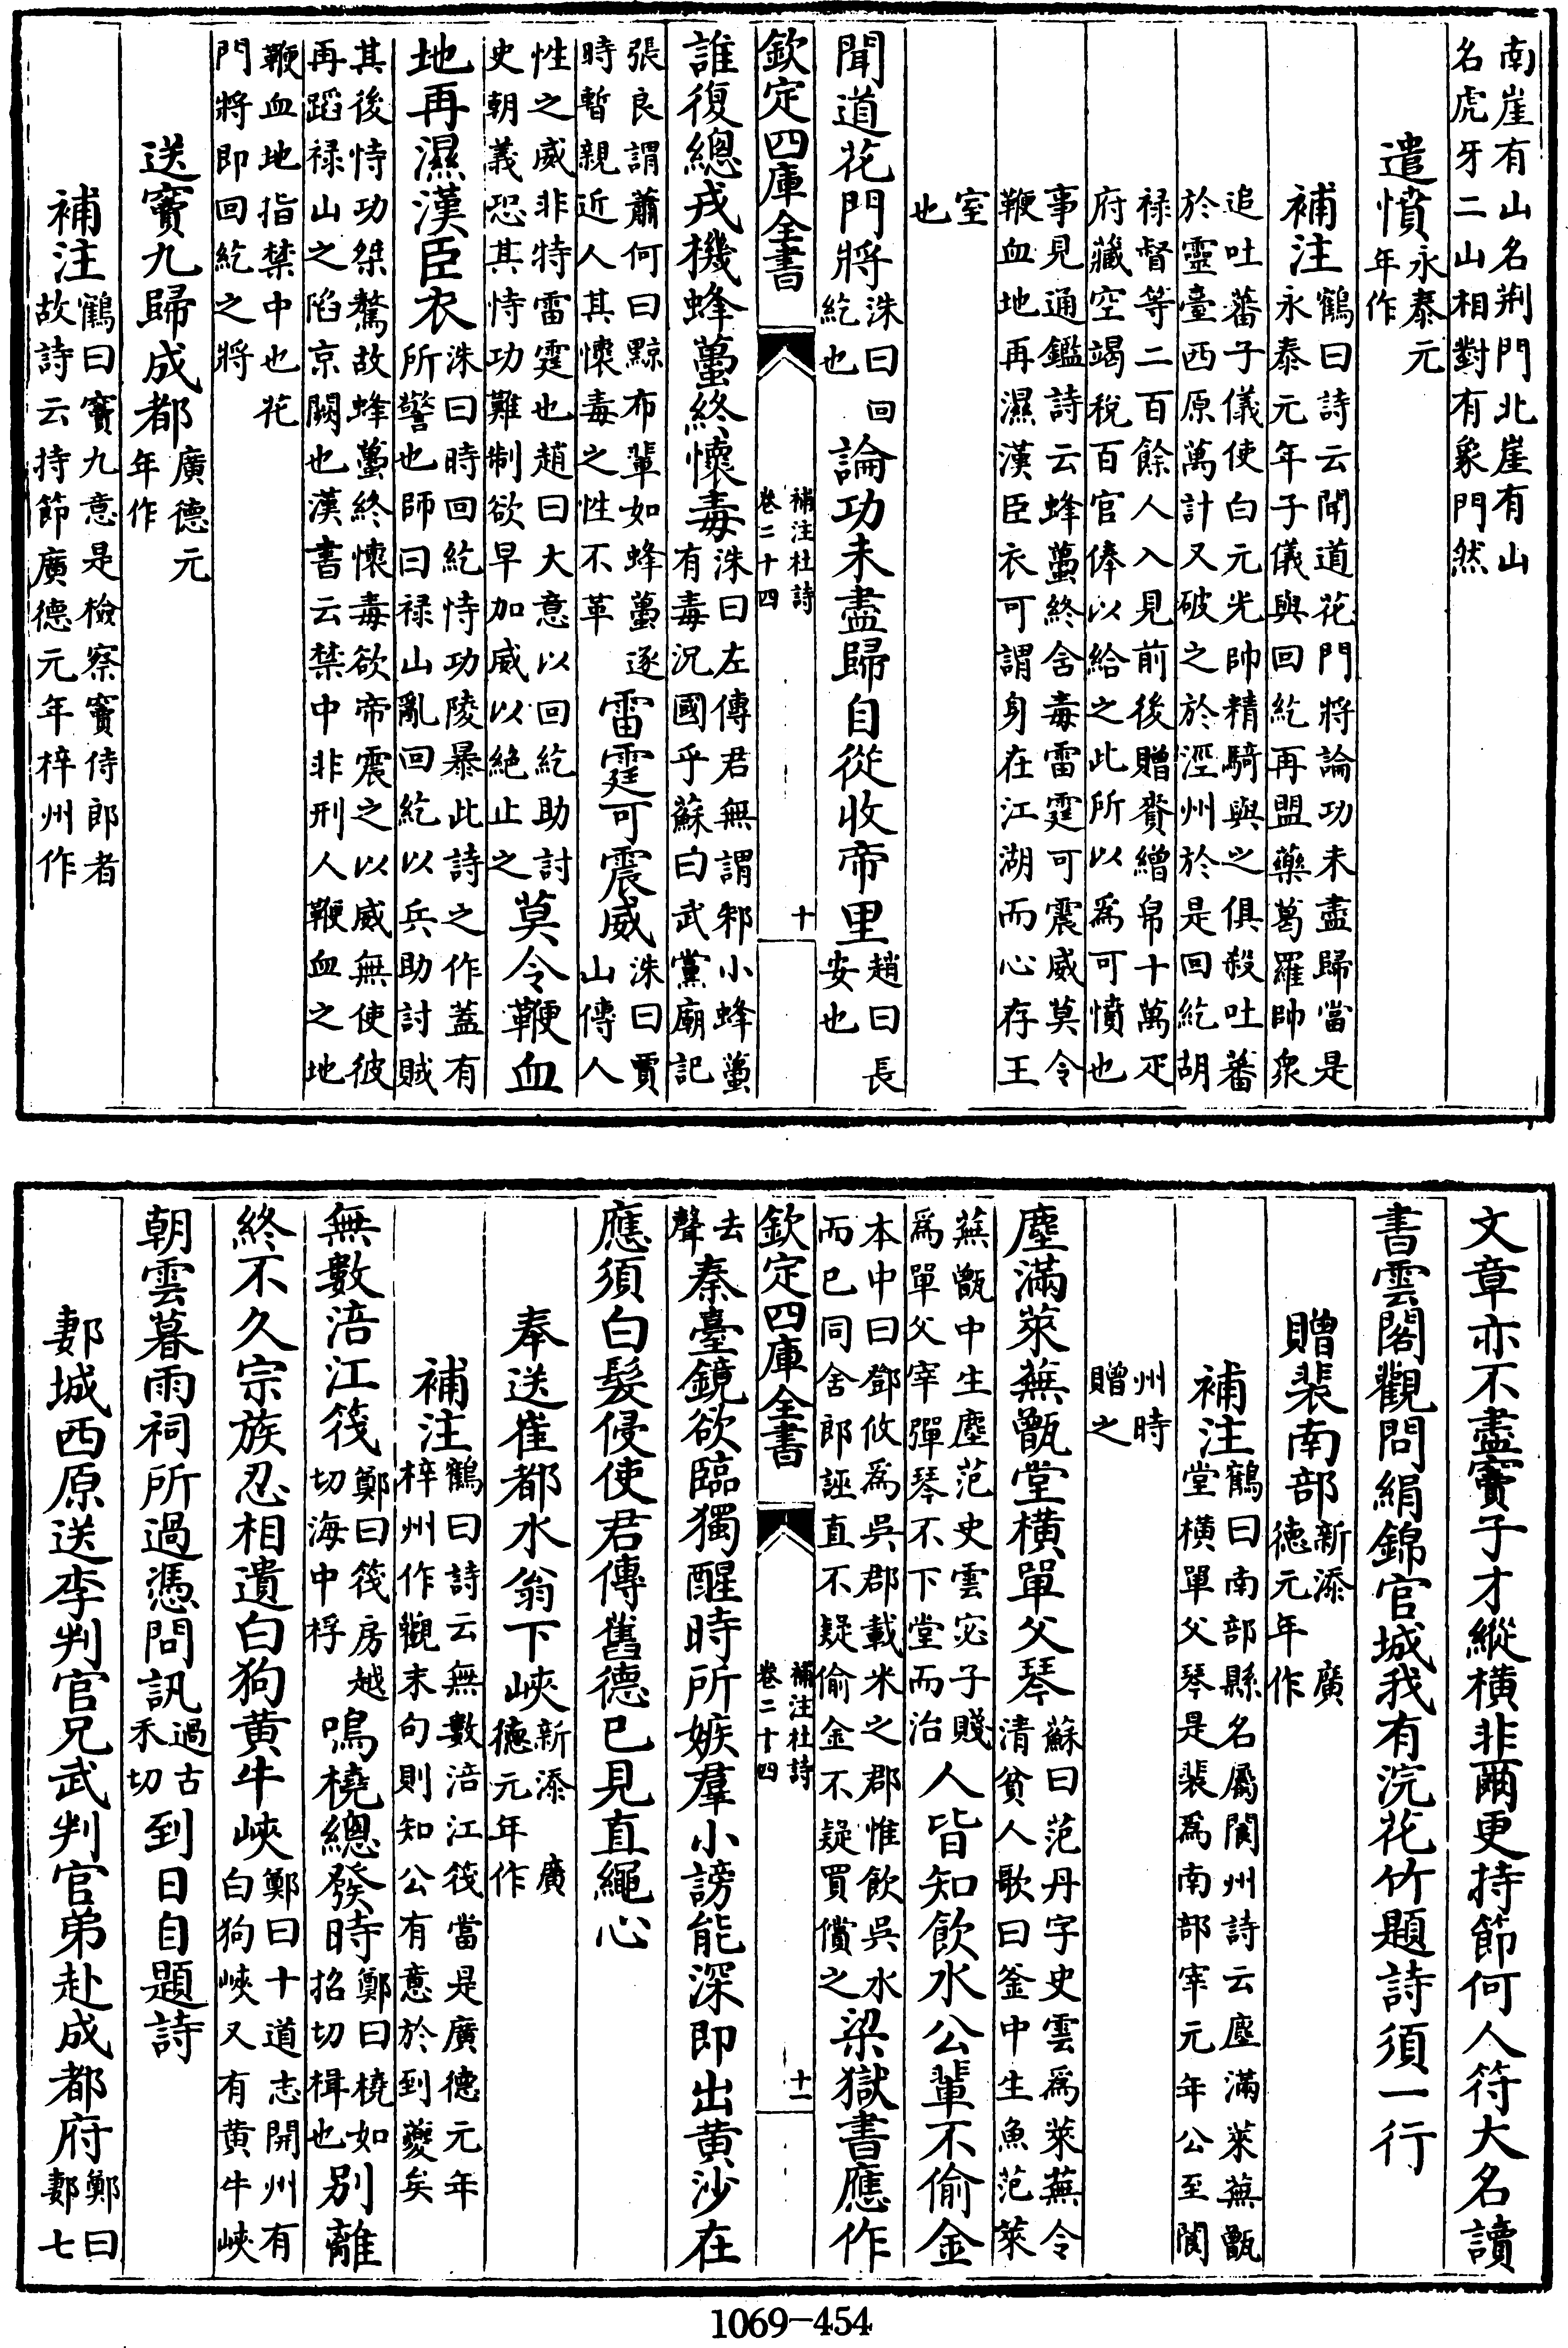 南崖有山名荆門北崖有山
名虎牙二山相對有象門然
遣憤永泰元
年作
補注鶴曰詩云聞道花門將論功未盡歸當是
永泰元年子儀與回紇再盟藥葛羅帥衆
追吐蕃子儀使白元光帥精騎與之俱殺吐蕃
於靈臺西原萬計又破之於涇州於是回紇胡
禄督等二百餘人入見前後贈賚繒帛十萬疋
府藏空竭稅百官俸以給之此所以爲可憤也
事見通鑑詩云蜂蠆終舍毒雷霆可震威莫令
鞭血地再濕漢臣衣可謂身在江湖而心存王
室
也
聞道花門將洙曰回紇也論功未盡歸自從收帝里趙曰長安也
欽定四庫全書
補注杜詩
卷二十四
十
誰復總戎機蜂蠆終懷毒洙曰左傳君無謂邾小蜂蠆
有毒況國乎蘇曰武黨廟記
張良謂蕭何曰黥布輩如蜂蠆逐時暫親近人其懷毒之性不革雷霆可震威洙曰賈山傳人
性之威非特雷霆也趙曰大意以回紇助討史朝義恐其恃功難制欲早加威以絶止之莫令鞭血
地再濕漢臣衣洙曰時回紇恃功陵暴此詩之作蓋有
所警也師曰禄山亂回紇以兵助討賊
其後恃功桀驁故蜂蠆終懷毒欲帝震之以威無使彼
再蹈禄山之陷京闕也漢書云禁中非刑人鞭血之地
鞭血地指禁中也花
門將即回紇之將
送竇九歸成都廣德元
年作
補注鶴曰竇九意是檢察竇侍郎者
故詩云持節廣德元年梓州作
文章亦不盡竇子才縱橫非爾更持節何人符大名讀
書雲閣觀問絹錦官城我有浣花竹題詩須一行
贈裴南部新添 廣
德元年作
補注鶴曰南部縣名屬閬州詩云塵滿萊蕪甑
堂橫單父琴是裴爲南部宰元年公至閬
州時
贈之
塵滿萊蕪甑堂橫單父琴蘇曰范丹字史雲爲萊蕪令
清貧人歌曰釜中生魚范萊
蕪甑中生塵范史雲宓子賤爲單父宰彈琴不下堂而治人皆知飲水公輩不偷金
本中曰鄧攸爲吳郡載米之郡惟飲吳水而已同舍郎誣直不疑偷金不疑買償之梁獄書應作
欽定四庫全書
補注杜詩
卷二十四
十一
去聲秦臺鏡欲臨獨醒時所嫉羣小謗能深即出黄沙在
應須白髮侵使君傳舊德已見直繩心
奉送崔都水翁下峽新添 廣
德元年作
補注鶴曰詩云無數涪江筏當是廣德元年
梓州作觀末句則知公有意於到夔矣
無數涪江筏鄭曰筏房越切海中桴鳴橈總發時鄭曰橈如招切楫也别離
終不久宗族忍相遺白狗黄牛峽鄭曰十道志開州有
白狗峽又有黄牛峽
朝雲暮雨祠所過憑問訊過古禾切到日自題詩
郪城西原送李判官兄武判官弟赴成都府鄭曰
郪七
1069-454